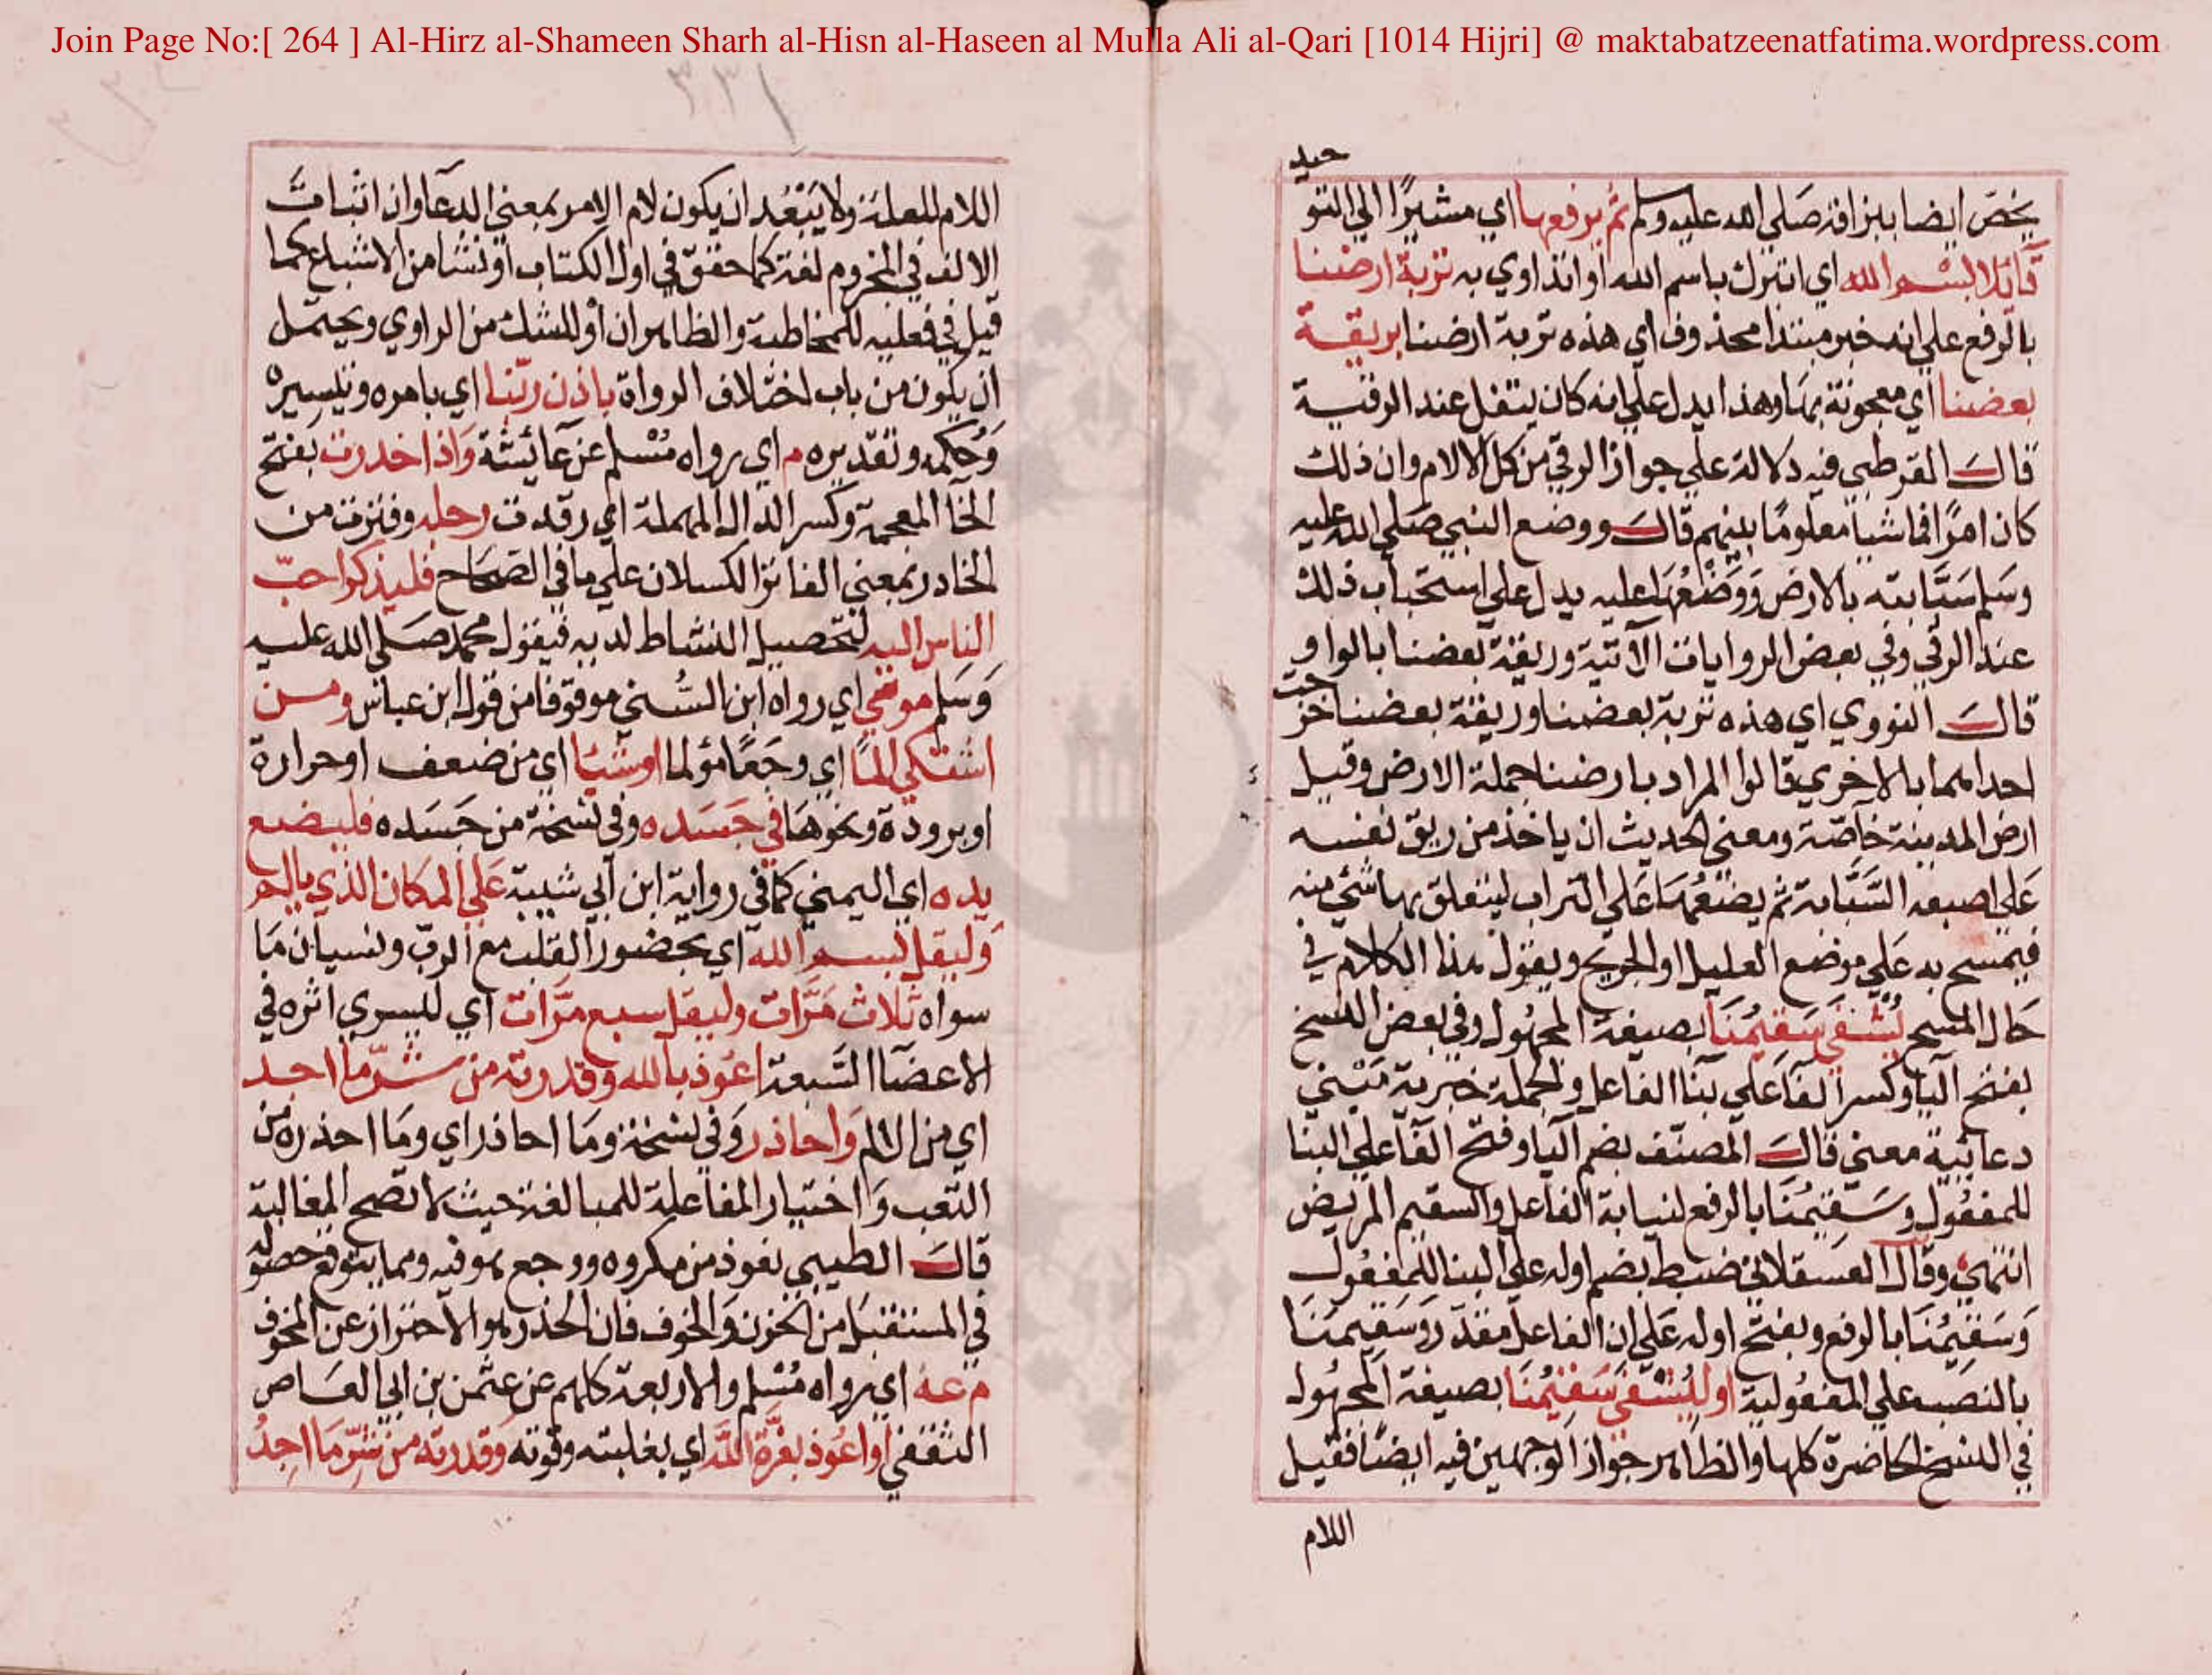 Join Page No:[ 264 ] Al-Hirz al-Shameen Sharh al-Hisn al-Haseen al Mulla Ali al-Qari [1014 Hijri] @ maktabatzeenatfatima.wordpress.com
يخص ايضا ببزاقه صلي الله عليه وسلم ثم يرفعها اي مشيرا الي
قائلا بسم الله اي اتبرك باسم الله او اتداوي به تربة ارضنا
بالرفع علي انه خبر مبتدا محذوف اي هذه تربة ارضنا بريقة
بعضنا اي معجونة بها وهذا يدل علي انه كان يتفل عند الرقية
قال القرطبي فيه دلالة علي جواز الرقي من كل الالام وان ذلك
كان امرا فاشيا معلوما بينهم قال ووضع النبي صلي الله عليه
وسلم سبابته بالارض ووضعها عليه يدل علي استحباب ذلك
عند الرقي وفي بعض الروايات الآتية وريقة بعضنا بالواو
قال النووي اي هذه تربة بعضنا وريقة بعضنا
احداهما بالاخري قالوا المراد بارضنا جملة الارض وقيل
ارض المدينة خاصة ومعني الحديث ان ياخذ من ريق نفسه
علي اصبعه السبابة ثم يضعها علي التراب ليتعلق بها شئ منه
فيمسح به علي موضع العليل او الجريح ويقول هذا الكلام في
حال المسح يُشْفَي سَقِيمُنَا بصيغة المجهول وفي بعض النسخ
بفتح اليا وكسر الفا علي بنا الفاعل والجملة خبرية مبني
دعائية معني قال المصنف بضم اليا وفتح الفا علي البنا
للمفعول وسقيمُنا بالرفع لنيابة الفاعل والسقيم المريض
انتهي وقال العسقلاني ضبط بضم اوله علي البنا للمفعول
وسقيمُنا بالرفع وبفتح اوله علي ان الفاعل مقدر وسقيمَنا
بالنصب علي المفعولية او ليُشْفَي سَقِيمُنَا بصيغة المجهول
في النسخ الحاضرة كلها والظاهر جواز الوجهين فيه ايضا فقيل
اللام
اللام للعلة ولا يبعد ان يكون لام الامر بمعني الدعا وان اثبات
الالف في المجزوم لغة كما حقق في اول الكتاب او نشا من الاشباع كما
قيل في فعليه للمخاطبة والظاهر ان او للشك من الراوي ويحتمل
ان يكون من باب اختلاف الرواة باذن ربنا اي بامره وتيسيره
وحكمه وتقديره م اي رواه مسلم عن عائشة واذا خدرت بفتح
الخا المعجمة وكسر الدال المهملة اي رقدت رجله وفترت من
الخادر بمعني الفاتر الكسلان علي ما في الصحاح فليذكر احب
الناس اليه لتحصيل النشاط لديه فيقول محمد صلي الله عليه
وسلم مو في اي رواه ابن السني موقوفا من قول ابن عباس ومن
اشتكي الما اي وجعا مؤلما او شيا اي من ضعف او حرارة
او برودة ونحوها في جسده وفي نسخة من جسده فليضع
يده اي اليمني كما في رواية ابن ابي شيبة علي المكان الذي يالم
وليقل بسم الله اي بحضور القلب مع الرب ونسيان ما
سواه ثلاث مرات وليقل سبع مرات اي ليسري اثره في
الاعضا السبعة اعوذ بالله وقدرته من شر ما اجد
اي من الالم واحاذر وفي نسخة وما احاذر اي وما احذره من
التعب واختيار المفاعلة للمبالغة حيث لا تصح المغالبة
قال الطيبي تعوذ من مكروه ووجع هو فيه ومما يتوقع حصوله
في المستقبل من الحزن والخوف فان الحذر هو الاحتراز عن المخوف
م عه اي رواه مسلم والاربعة كلهم عن عثمن بن ابي العاص
الثقفي او اعوذ بعزة الله اي بغلبته وقوته وقدرته من شر ما اجد